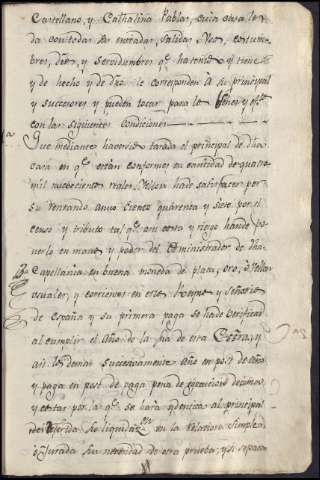 Castellano, y Cathalina Pablar, cuia casa le ven
da con todas sus entradas, salidas Usos, costum
bres, dros, y servidumbres qe. ha tenido y tiene
y de hecho y de dro. le corresponden à su principal
y successores y pueden tocar para le
con las siguientes Condiciones
Que mediante haverse tasado el principal de dha
casa en qe. están conformes en cantidad de quatro
mil novecientos reales Vellon ha de satisfacer por
su rento anuo Ciento quarenta y siete por el
Censo y tributo qe. am costa y riego han de po
nerlo en mano y poder del Administrador de dha
Capellania en buena moneda de plata, oro, ò Vellon
usuales, y corrientes en este Reyno y Señorio
de España y su primera paga se ha de Verificar
al cumplir el Año de la fha de esta Escra, y
asi los demas succesivamte. Año en post de Año
y paga en post de paga pena de execucion decimas
y costas por la qe. se hará identica al principal
referida su liquidazn. en la relacion simple ò
jurada su necesidad de otra prueba, y si